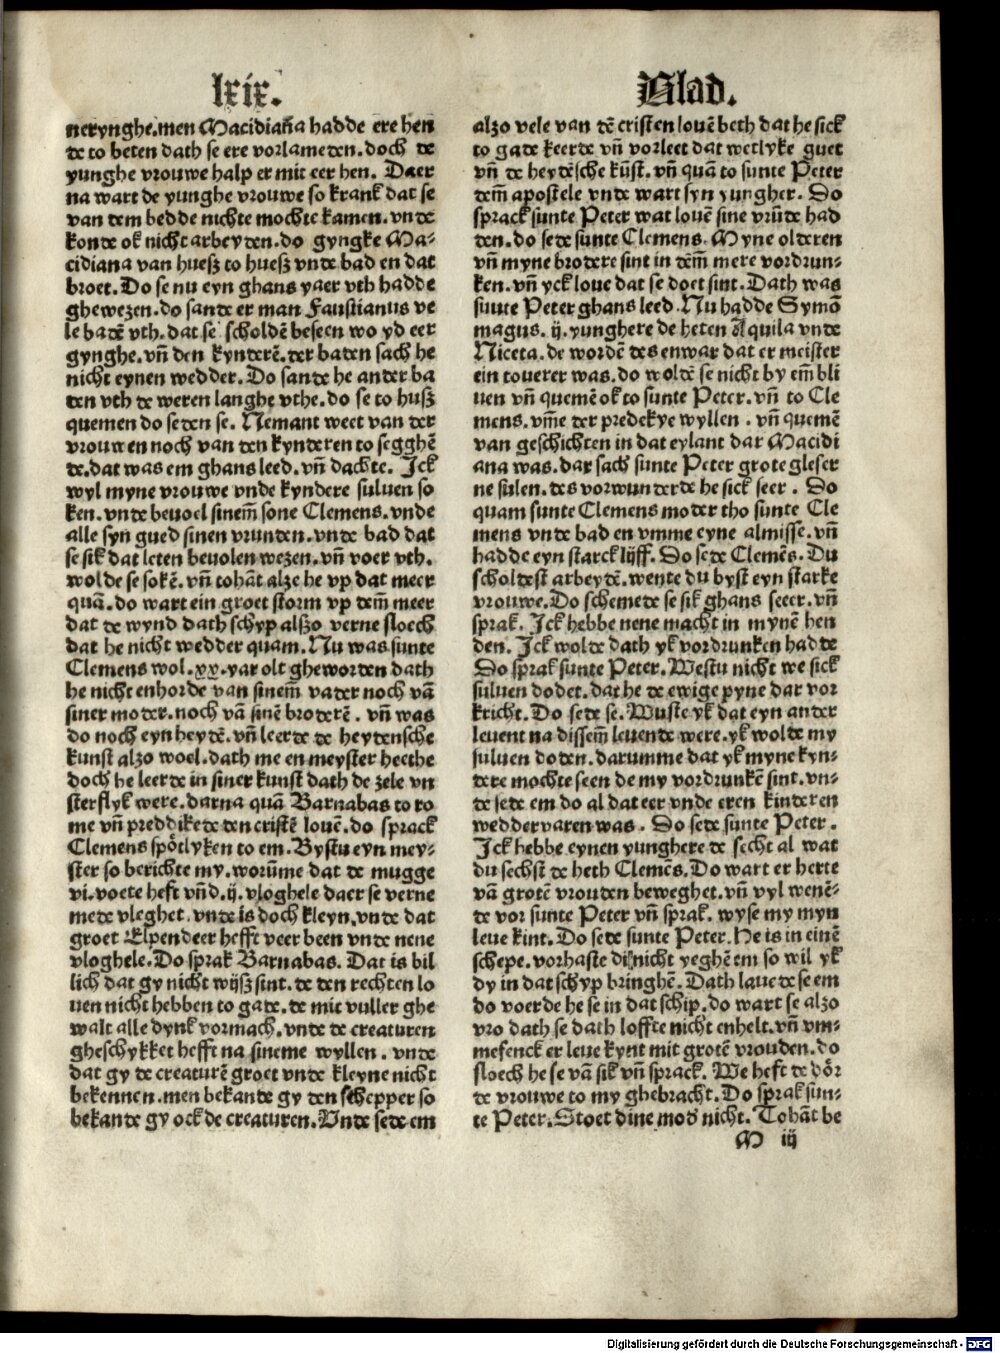 lxix.
Blad.
nerynghe.men Macidiana hadde ere hen
de to beten dath se ere vorlameden.doch de
yunghe vrouwe halp er mit eer hen. Daer
na wart de yunghe vrouwe so krank dat se
van dem bedde nichte mochte kamen.vnde
konde ok nicht arbeyden.do gyngke Ma-
cidiana van huesz to huesz vnde bad en dat
broet.Do se nu eyn ghans yaer vth hadde
ghewezen.do sande er man Faustianus ve
le badē vth.dat se scholdē beseen wo yd eer
gynghe.vn̄ den kynderē.der baden sach he
nicht eynen wedder.Do sande he ander ba
den vth de weren langhe vthe.do se to husz
quemen do seden se. Nemant weet van der
vrouwen noch van den kynderen to segghē
de.dat was em ghans leed.vn̄ dachte. Ick
wyl myne vrouwe vnde kyndere suluen so
ken.vnde beuoel sinem̄ sone Clemens.vnde
alle syn gued sinen vrunden.vnde bad dat
se sik dat leten beuolen wezen.vn̄ voer vth.
wolde se sokē.vn̄ tohāt alze he vp dat meer
quā.do wart ein groet storm vp dem̄ meer
dat de wynd dath schyp alszo verne sloech
dat he nicht wedder quam.Nu was sunte
Clemens wol.xx.yar olt gheworden dath
he nicht enhorde van sinem̄ vader noch vā
siner moder.noch vā sinē broderē. vn̄ was
do noch eyn heydē.vn̄ leerde de heydensche
kunst alzo woel.dath me en meyster heethe
doch he leerde in siner kunst dath de zele vn
sterflyk were.darna quā Barnabas to ro
me vn̄ preddikede den cristē louē.do sprack
Clemens spötlyken to em.Bystu eyn mey-
ster so berichte my.worūme dat de mugge
vi.voete heft vn̄d.ij.vloghele daer se verne
mede vleghet.vnde is doch kleyn.vnde dat
groet Elpendeer hefft veer been vnde nene
vloghele.Do sprak Barnabas. Dat is bil
lich dat gy nicht wijsz sint.de den rechten lo
uen nicht hebben to gade.de mit vuller ghe
walt alle dynk vormach.vnde de creaturen
gheschykket hefft na sineme wyllen. vnde
dat gy de creaturē groet vnde kleyne nicht
bekennen.men bekande gy den schepper so
bekande gy ock de creaturen.Vnde sede em
alzo vele van dē cristen louē beth dat he sick
to gade keerde vn̄ vorleet dat wetlyke guet
vn̄ de heydēsche kūst.vn̄ quā to sunte Peter
dem̄ apostele vnde wart syn yungher. Do
sprack sunte Peter wat louē sine vrūde had
den.do sede sunte Clemens.Myne olderen
vn̄ myne brodere sint in dem̄ mere vordrun-
ken.vn̄ yck loue dat se doet sint.Dath was
sunte Peter ghans leed.Nu hadde Symō
magus.ij.yunghere de heten Aquila vnde
Niceta.de wordē des enwar dat er meister
ein touerer was.do woldē se nicht by em̄ bli
uen vn̄ quemē ok to sunte Peter.vn̄ to Cle
mens.vm̄e der predekye wyllen.vn̄ quemē
van geschichten in dat eylant dar Macidi
ana was.dar sach sunte Peter grote gleser
ne sulen.des vorwunderde he sick seer. Do
quam sunte Clemens moder tho sunte Cle
mens vnde bad en vmme eyne almisse.vn̄
hadde eyn starck lijff.Do sede Clemēs. Du
scholdest arbeydē.wente du byst eyn starke
vrouwe.Do schemede se sik ghans seer.vn̄
sprak. Ick hebbe nene macht in mynē hen
den. Ick wolde dath yk vordrunken hadde
Do sprak sunte Peter.Westu nicht we sick
suluen dodet.dat he de ewige pyne dar vor
kricht.Do sede se.Wuste yk dat eyn ander
leuent na dissem̄ leuende were.yk wolde my
suluen doden.darumme dat yk myne kyn-
dere mochte seen de my vordrunkē sint.vn-
de sede em do al dat eer vnde eren kinderen
weddervaren was. Do sede sunte Peter.
Ick hebbe eynen yunghere de secht al wat
du sechst de heth Clemēs.Do wart er herte
vā grotē vrouden beweghet.vn̄ vyl wenē-
de vor sunte Peter vn̄ sprak.wyse my myn
leue kint.Do sede sunte Peter.He is in einē
schepe.vorhaste di nicht yeghē em so wil yk
dy in dat schyp bringhē.Dath laue de se em
do voerde he se in dat schip.do wart se alzo
vro dath se dath loffte nicht enhelt.vn̄ vm-
mefenck er leue kynt mit grotē vrouden.do
sloech he se vā sik vn̄ sprack. We heft de dör
de vrouwe to my ghebracht.Do sprak sun-
te Peter.Stoet dine mod nicht. Tohāt be
M iij
Digitalisierung gefördert durch die Deutsche Forschungsgemeinschaft - DFG